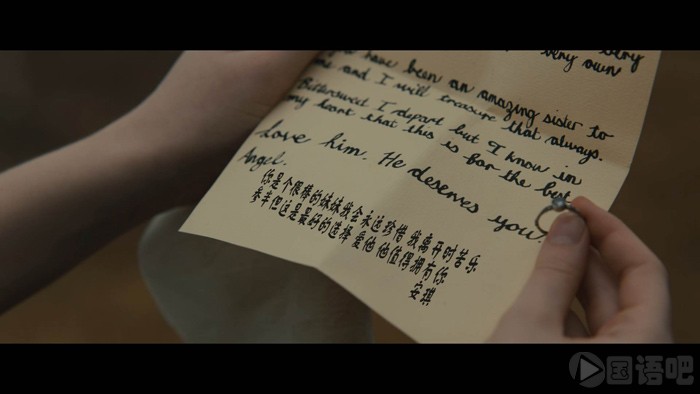 very
very own
have been an amazing sister to
me and I will treasure that always.
Bittersweet I depart but I know in
my heart that this is for the best.
Love him. He deserves you.
Angel.
你是个很棒的妹妹我会永远珍惜 我离开时苦乐
参半但这是最好的选择 爱他 他值得拥有你
安琪
国语吧